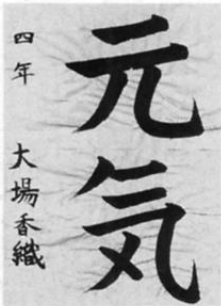 元気
四年 大場香織